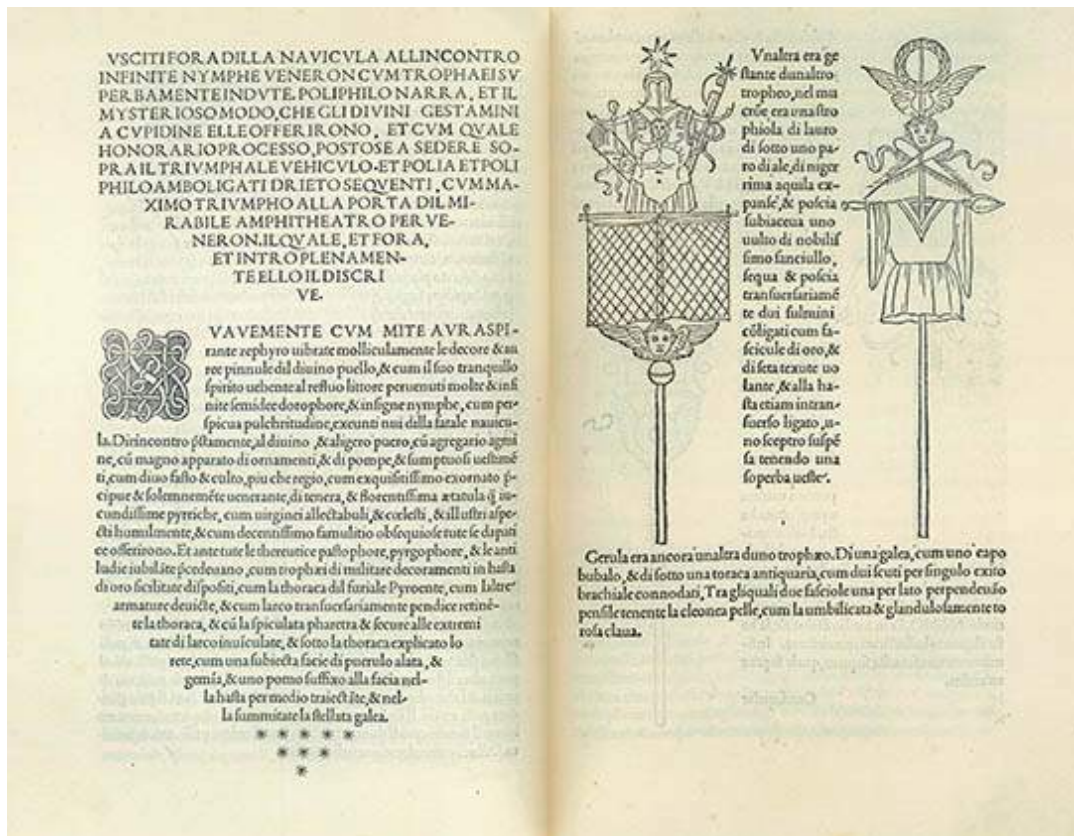 VSCITI FORA DILLA NAVICULA ALLINCONTRO
INFINITE NYMPHE VENERON CVM TROPHAEI SV
PERBAMENTE INDVTE. POLIPHILO NARRA, ET IL
MYSTERIOSO MODO, CHE GLI DIVINI GESTAMINI
A CVPIDINE ELLE OFFERIRONO, ET CVM QVALE
HONORARIO PROCESSO, POSTOSE A SEDERE SO-
PRA IL TRIVMPHALE VEHICVLO. ET POLIA ET POLI
PHILO AMBO LIGATI DRIETO SEQVENTI, CVM MA-
XIMO TRIVMPHO ALLA PORTA DIL MI-
RABILE AMPHITHEATRO PER VE-
NERON. IL QVALE, ET FORA,
ET INTRO PLENAMEN-
TE ELLO IL DISCRI
VE.
VAVEMENTE CVM MITE AVRA SPI-
rante zephyro uibrate molliculamente le decore & au
ree pinnule dil diuino puello, & cum il suo tranquillo
spirito uehente al refluo littore peruenuti molte & infi
nite semidee dorophore, & insigne nymphe, cum per-
spicua pulchritudine, exeunti nui dilla fatale nauicu-
la. Dirincontro p̄stamente, al diuino, & aligero puero, cū agregario agmi
ne, cū magno apparato di ornamenti, & di pompe, & sumptuosi uestimē
ti, cum diuo fasto & culto, piu che regio, cum exquisitissimo exornato p̄-
cipue & solemnemēte uenerante, di tenera, & florentissima ætatula q̄ iu-
cundissime pyrriche, cum uirginei allectabuli, & cœlesti, & illustri aspe-
cti humilmente, & cum decentissimo famulitio obsequiose tute se dapati
ce offerirono. Et ante tute le thereutice pastophore, pyrgophore, & le anti
ludie iubilāte p̄cedeuano, cum trophæi di militare decoramenti in hasta
di oro dispositi, cum la thoraca dil furiale Pyroente, cum laltre
armature deuicte, & cum larco transuersariamente pendice retinē-
te la thoraca, & cū la spiculata pharetra & secure alle extremi
tate di larco inuiculate, & sotto la thoraca explicato lo
rete, cum una subiecta facie di puerulo alata, &
gemīa, & uno pomo suffixo alla facia nel-
la hasta per medio traiectāte, & nel-
la summitate la stellata galea.
* * * * *
* * *
*
Vnaltra era ge
stante dunaltro
tropheo, nel mu
crōe era una stro
phiola di lauro
di sotto uno pa
ro di ale, di niger
rima aquila ex-
panse, & poscia
subiaceua uno
uulto di nobilis
simo fanciullo,
sequa & poscia
transuersariamē
te dui fulmini
cōligati cum fa-
scicule di oro, &
di seta texute uo
lante, & alla ha-
sta etiam intran-
suerso ligato, u-
no sceptro suspē
sa tenendo una
soperba ueste.
Gerula era ancora unaltra duno trophæo. Di una galea, cum uno capo
bubalo, & di sotto una toraca antiquaria, cum dui scuti per singulo exito
brachiale connodati, Tra gliquali due fasciole una per lato perpendeuo
pensile tenente la cleonea pelle, cum la umbilicata & glandulosamente to
rosa claua.